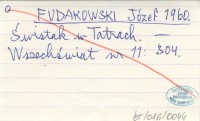 FUDAKOWSKI Józef 1960.
Świstak w Tatrach. —
Wszechświat nr 11: 304.